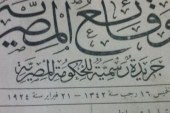 وقائع المصرية
جريدة رسمية للحكومة المصرية
١٦ رجب سنة ١٣٤٢ - ٢١ فبراير سنة ١٩٢٤